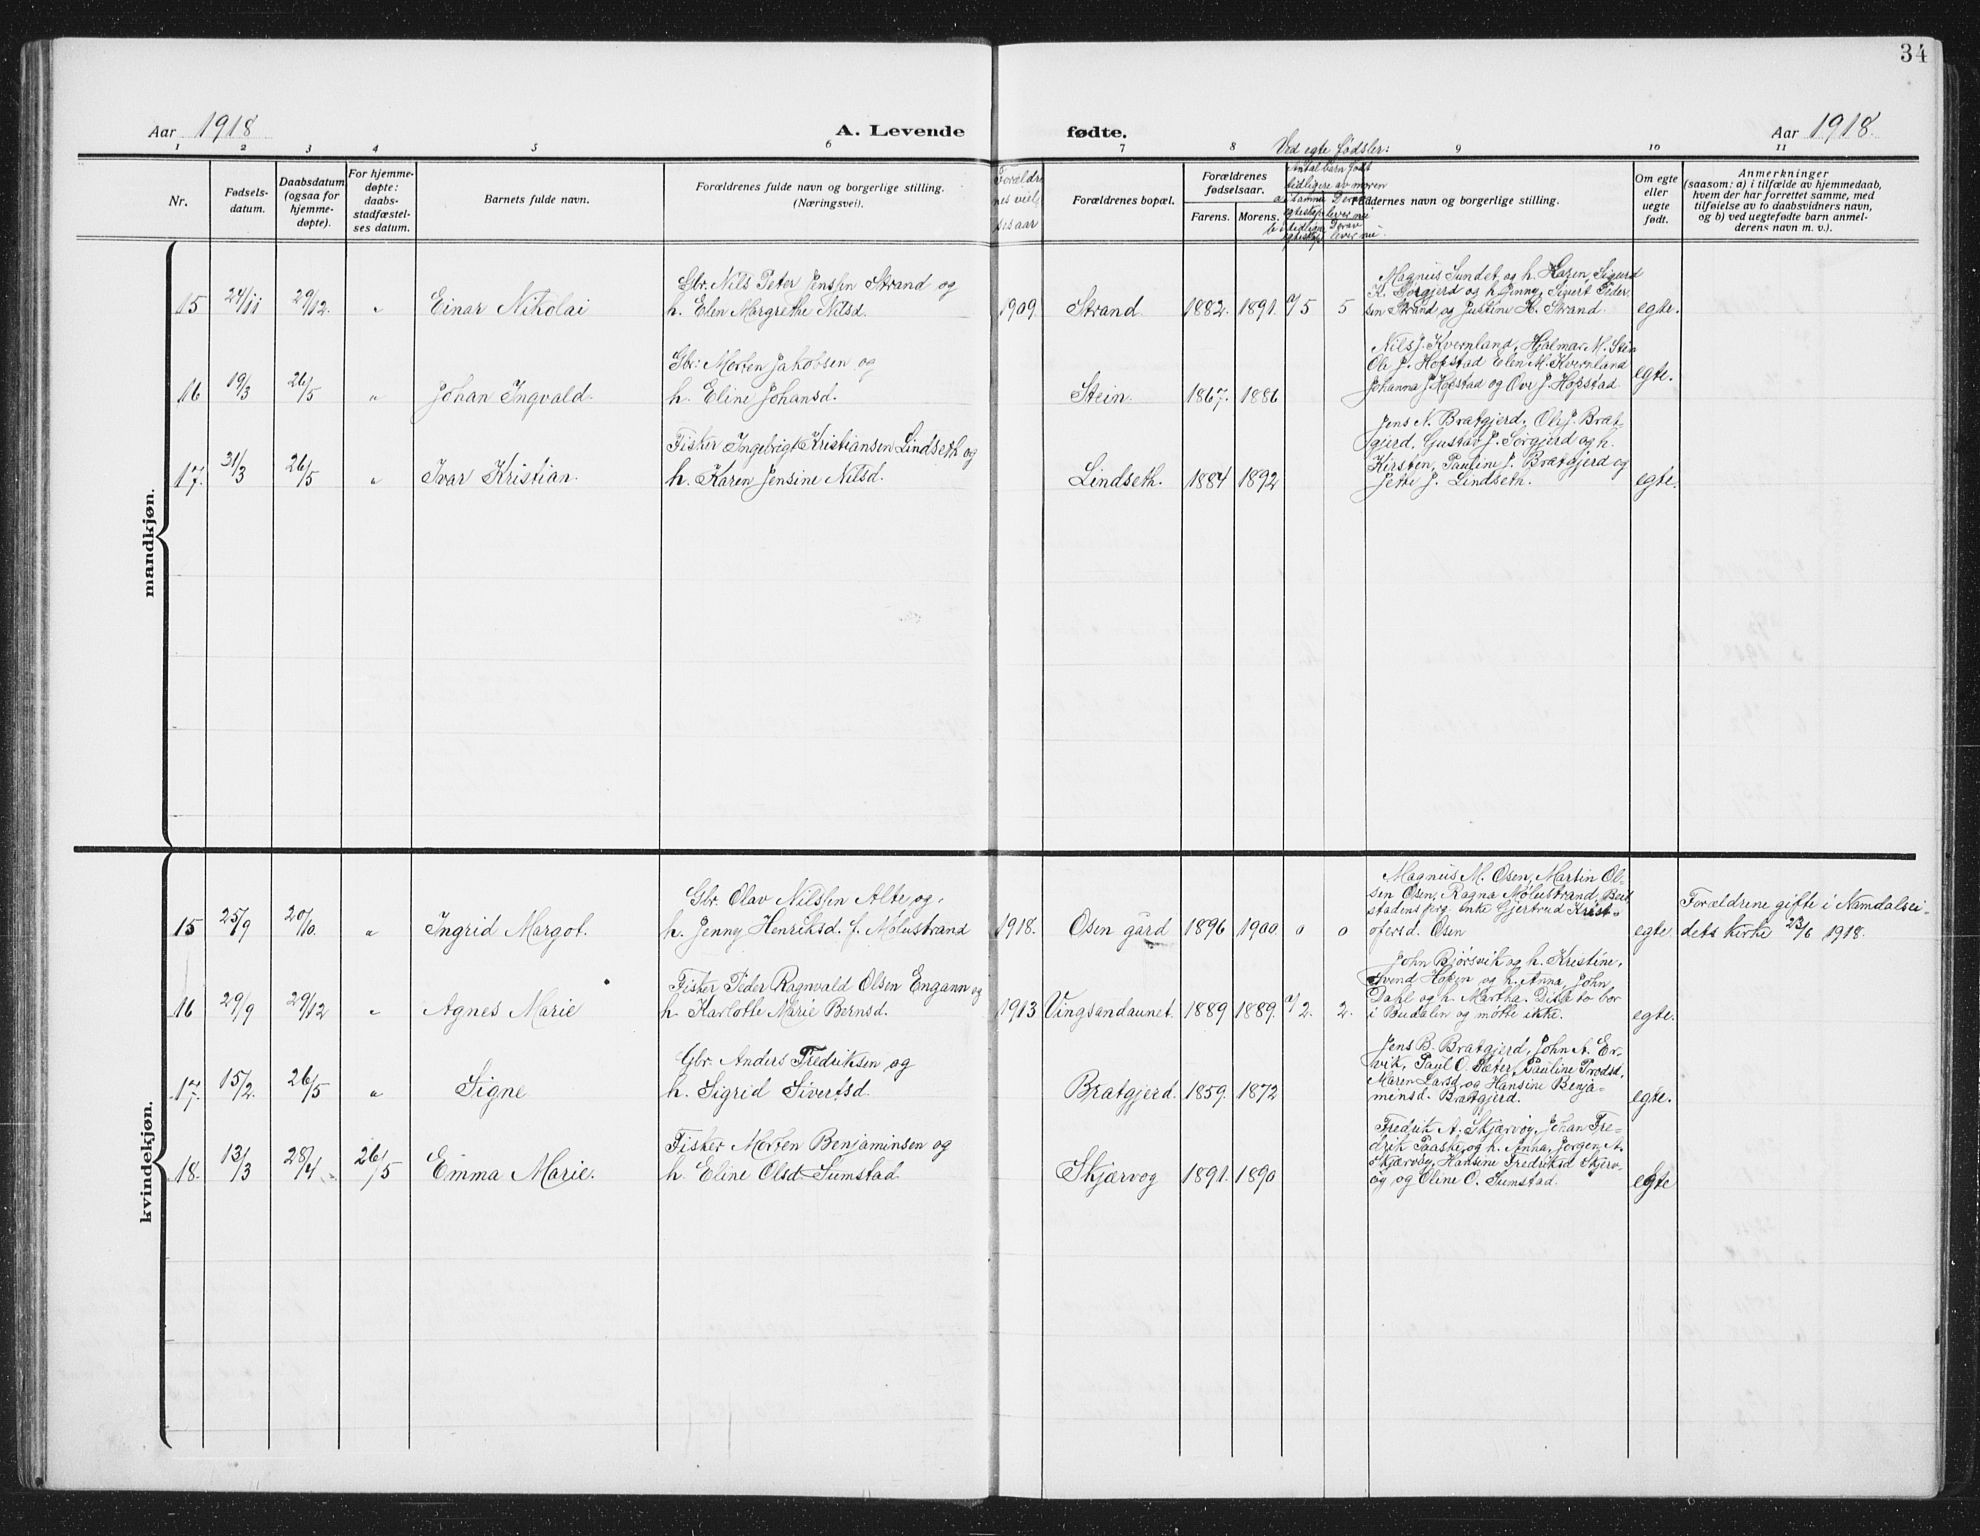 34
Aar 1918
A. Levende fødte.
Aar 1918.
1 2 3 4 5 6 7 8 9 10 11
Ved egte fødsler:
Nr.
Fødsels-
datum.
Daabsdatum
(ogsaa for
hjemme-
døpte).
For hjemme-
døpte:
daabs-
stadfæstel-
ses datum.
Barnets fulde navn.
Forældrenes fulde navn og borgerlige stilling.
(Næringsvei).
Forældre
nes viel
sesaar
Forældrenes bopæl.
Forældrenes
fødselsaar.
Farens. Morens.
Antal barn født
tidligere av moren
Faddernes navn og borgerlige stilling.
Om egte
eller
uegte
født.
Anmerkninger
(saasom: a) i tilfælde av hjemmedaab,
hvem der har forrettet samme, med
tilføielse av to daabsvidners navn,
og b) ved uegtefødte barn anmel-
derens navn m. v.).
mandkjøn.
15 24/11 29/12. „ Einar Nikolai
Gbr. Nils Peter Jensen Strand og
h. Elen Margrethe Nilsd.
1909. Strand 1882. 1891. a/5 5
Magnus Sundet og h. Karen, Sigurd
K. Sørgjerd og h. Jenny, Sivert Peder
sen Strand og Justine K. Strand.
egte.
16 19/3 26/5 „ Johan Ingvald.
Gbr. Morten Jakobsen og
h. Eline Johansd.
Stein. 1867. 1886
Nils J. Kvernland, Hjalmar M. Stein
Ole J. Hopstad Elen M. Kvernland
Johanna J. Hopstad og Ove J. Hopstad
egte.
17. 31/3 26/5 „ Ivar Kristian.
Fisker Ingebrigt Kristiansen Lindseth og
h. Karen Jensine Nilsd.
Lindseth. 1884 1892
Jens N. Bratgjerd, Ole J. Brat-
gjerd, Gustav J. Sørgjerd og h.
Kirsten, Pauline J. Bratgjerd og
Jette J. Lindseth.
egte.
kvindekjøn.
15 25/9 20/10 „ Ingrid Margot.
Gbr. Olav Nilsen Alte og
h. Jenny Henriksd. f. Mølustrand
1918. Osen gård 1896 1900 0 0
Magnus M. Osen, Martin Ol-
sen Osen, Ragna Mølustrand, Beit
stadens prg. enke Gjertrud Krist-
ofersd. Osen
egte
Forældrene gifte i Namdalsei-
dets kirke 23/6 1918.
16 29/9 29/12 „ Agnes Marie
Fisker Peder Ragnvald Olsen Engann og
h. Karlotte Marie Bernsd.
1913 Vingsandaunet. 1889 1889. a/2. 2.
John Bjørsvik og h. Kristine,
Svend Hopen og h. Anna, John
Dahl og h. Martha. Disse to bor
i Budalen og møtte ikke.
egte.
17. 15/2. 26/5 „ Signe
Gbr. Anders Fredriksen og
h. Sigrid Sivertsd.
Bratgjerd. 1859. 1872
Jens B. Bratgjerd, John A. Er-
vik, Paul O. Sæter, Pauline Trodsd.
Maren Larsd. og Hansine Benja-
minsd. Bratgjerd.
egte.
18. 13/3 28/4 26/5 Emma Marie.
Fisker Morten Benjaminsen og
h. Eline Olsd. Sumstad.
Skjærvøg 1891. 1890
Fredrik A. Skjærvøy, Johan Fre-
drik Paaske og h. Anna, Jørgen A.
Skjærvøy, Hansine Fredriksd. Skjærv-
øg og Oline O. Sumstad.
egte